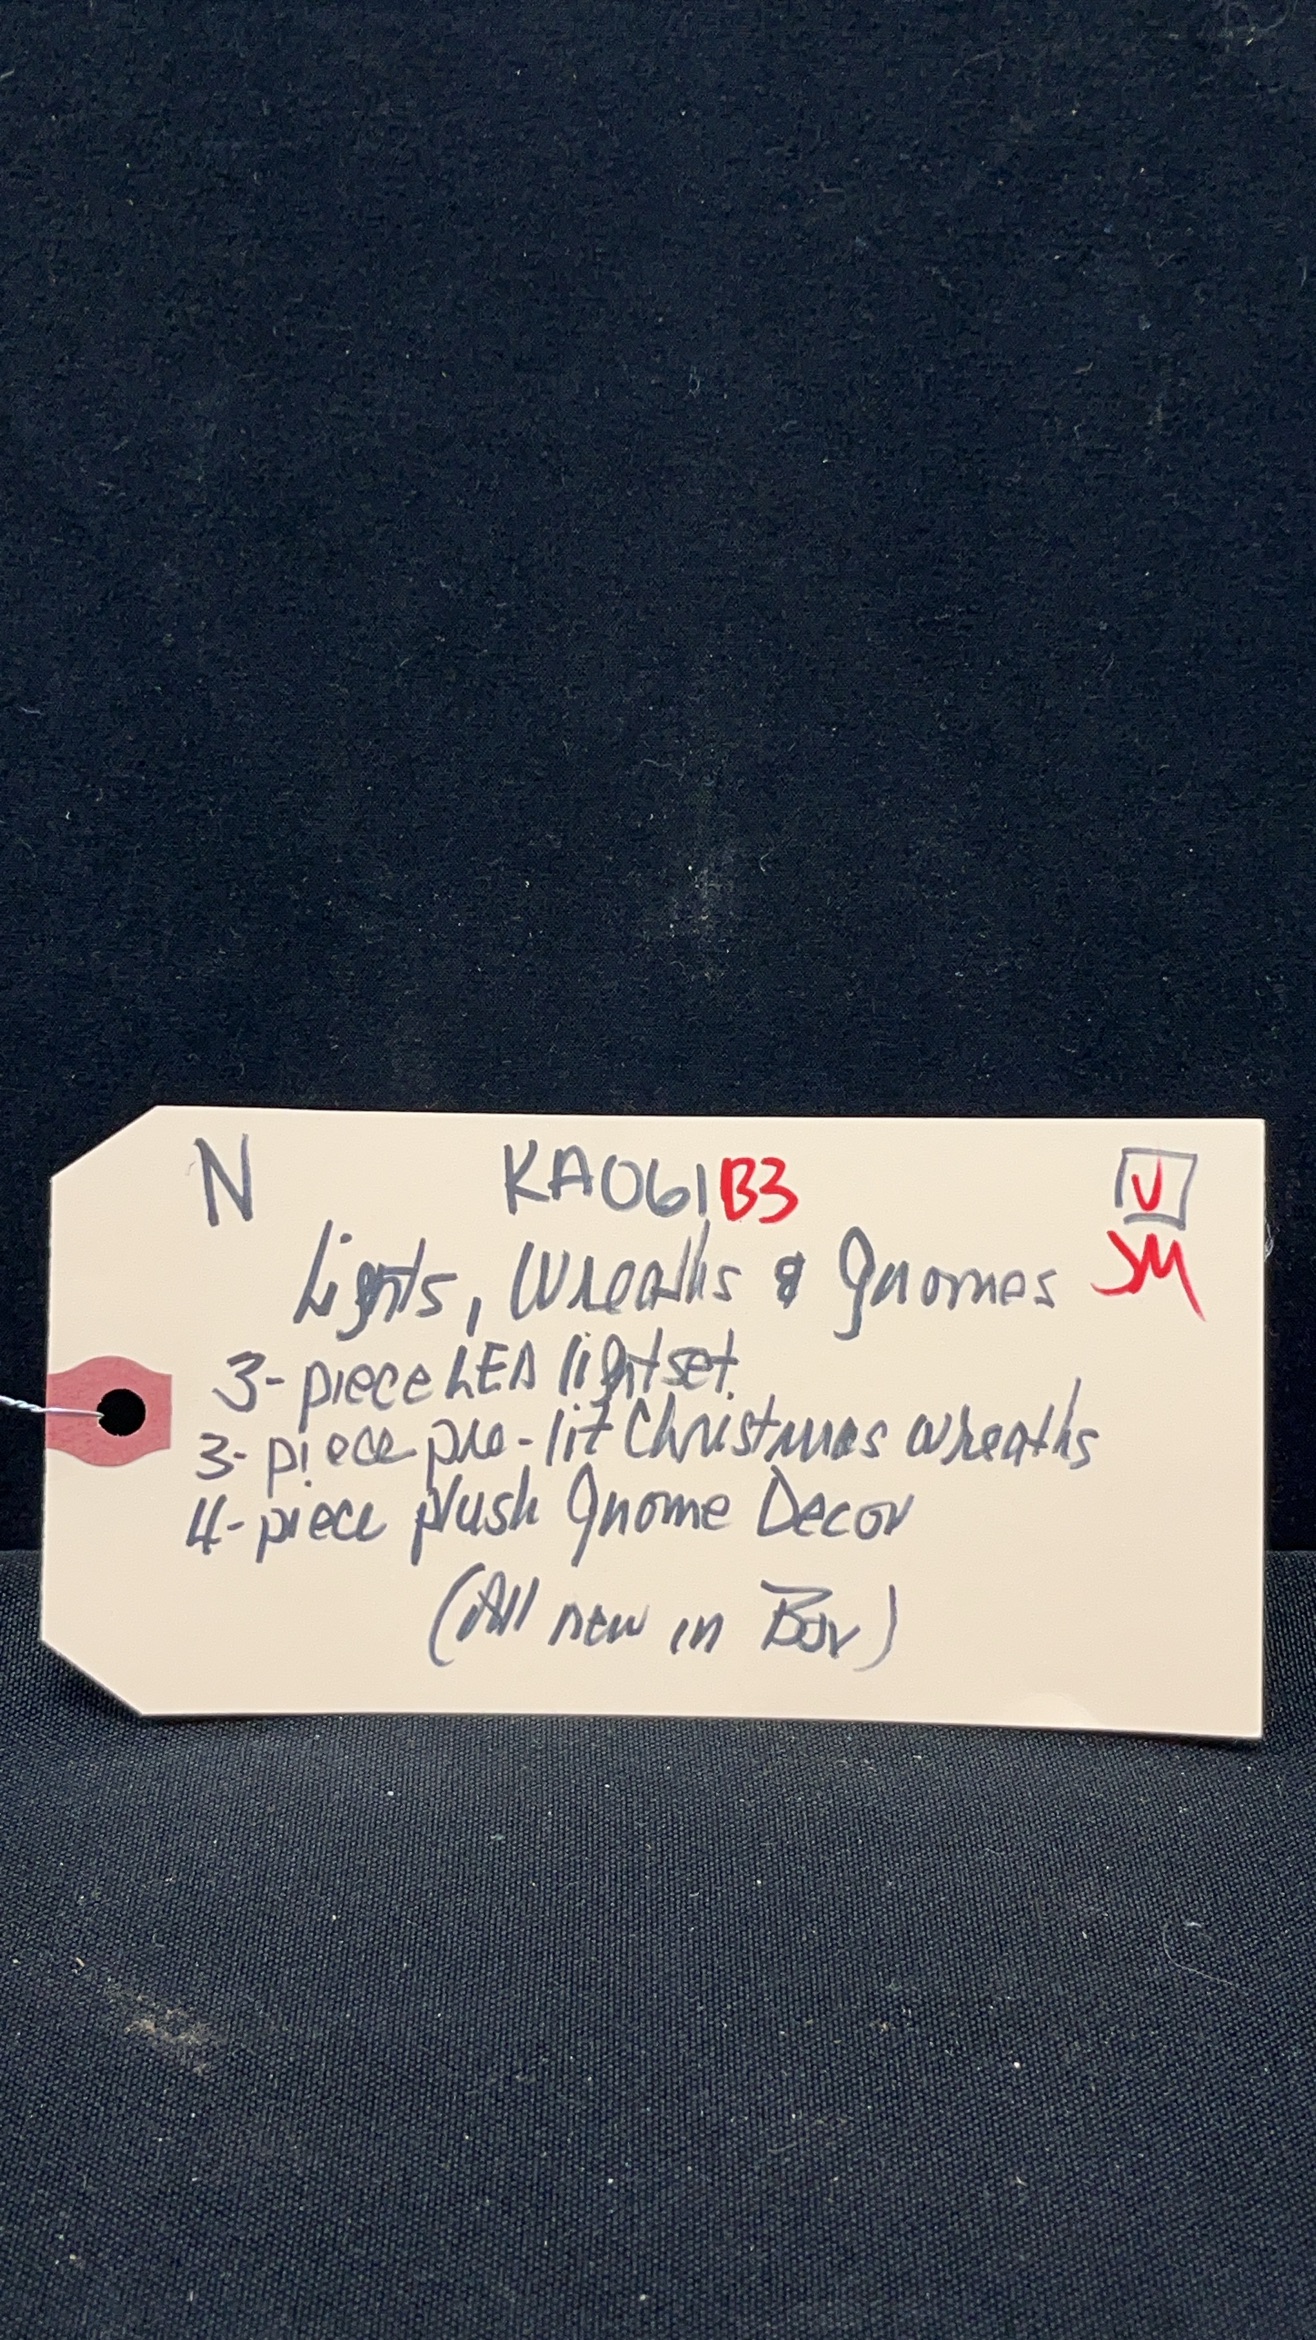 N KA061B3 V
Lights, Wreaths & Gnomes JM
3-piece LED light set
3-piece pre-lit Christmas wreaths
4-piece plush Gnome Decor
(All new in Box)